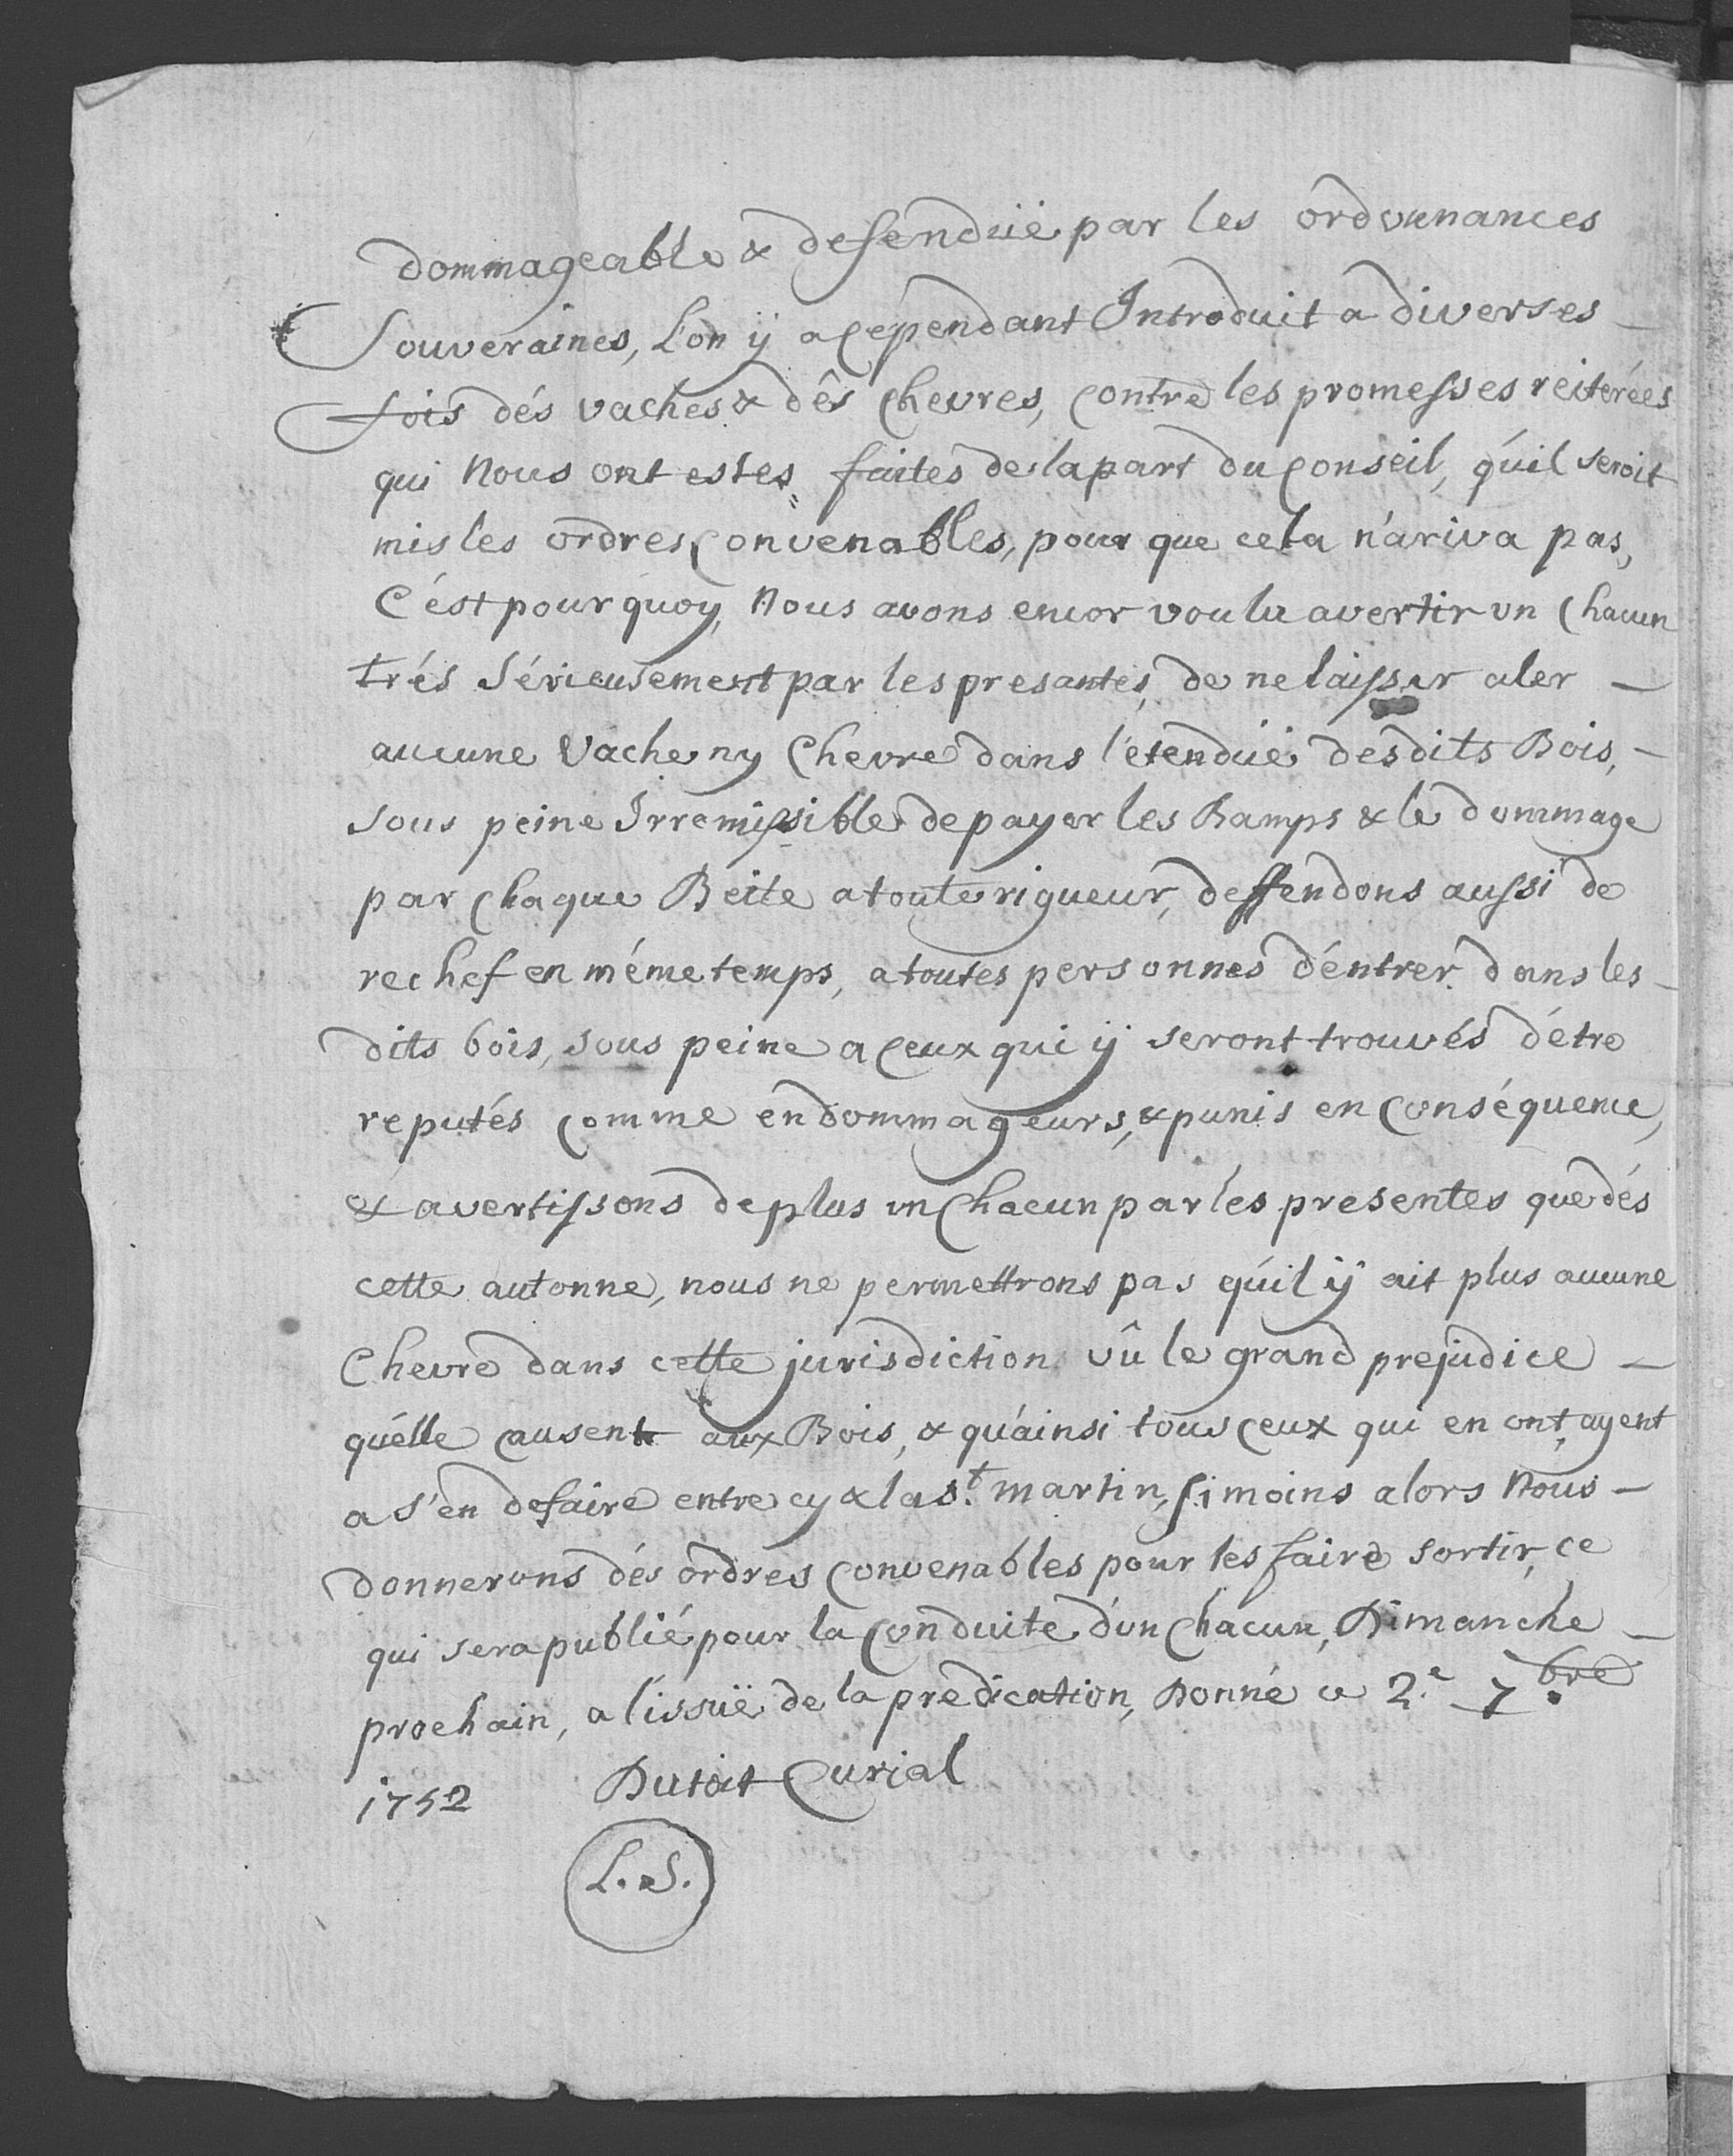 dommageable & defenduë par les ordonnances
Souveraines, L'on ÿ a cependant Introduit a diverses –
fois dés vaches & dês chevres, contre les promesses reiterées
qui Nous ont estes faites de la part du Conseil, qu'il seroit
mis les ordres Convenables, pour que cela n'ariva pas,
C'ést pour quoy, Nous avons encor voulu avertir un Chacun
trés Sérieusement par les presantes, de ne laisser aler –
aucune Vache ny Chevre dans l'étenduë desdits Bois, –
sous peine Irremissible de payer les Bamps & le dommage
par chaque Beite a toute rigueur, deffendons aussi de
rechef en méme temps, a toutes personnes d'éntrer dans les –
dits bois, sous peine a ceux qui ÿ seront trouvés d'étre
reputés comme endommageurs, & punis en Conséquence,
& avertissons de plus un Chacun par les presentes que dés
cette autonne, nous ne permettrons pas qu'il ÿ ait plus aucune
Chevre dans cette jurisdiction vû le grand prejudice –
qu'élle causent aux Bois, & qu'ainsi tous ceux qui en ont, ayent
a s'en defaire entre cy & la St. martin, si moins alors Nous –
donnerons dés ordres Convenables pour les faire sortir, ce
qui sera publié pour la Conduite d'un Chacun, Dimanche –
prochain, a l'issuë de la predication, Donné ce 2e. 7bre.
1752 Dutoit Curial
L.S.